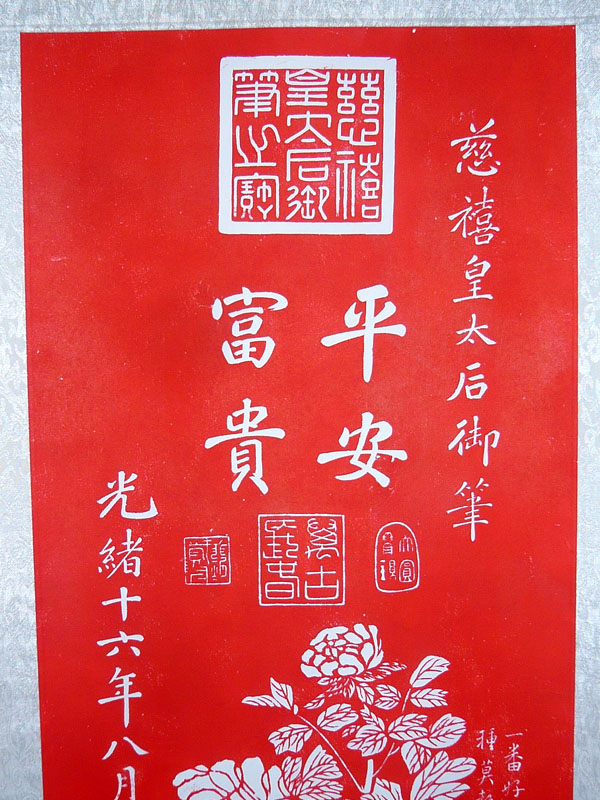 慈禧
皇太后御
筆之寶
慈禧皇太后御筆
平安
富貴
萬古
長春
光緒十六年八月
一番好
種莫